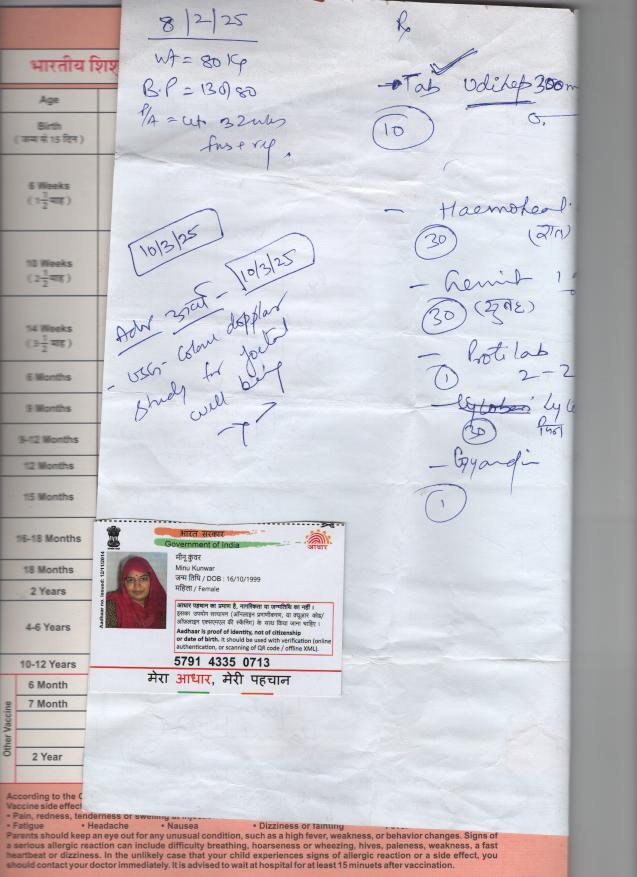 8/2/25
Wt = 80 Kg
B.P = 130/80
P/A = ut 32 wks
10/3/25
10/3/25
Adv
- USG - Colour doppler
study for foetal
well being
Rx
Tab Udihep 300m
10
- Haemoheal
30 (रात)
30 (सुबह)
- Protilab
1 2-2
30
1
भारतीय शिशु
Age
Birth
(जन्म से 15 दिन)
6 Weeks
(1½ माह)
10 Weeks
(2½ माह)
14 Weeks
(3½ माह)
6 Months
9 Months
9-12 Months
12 Months
15 Months
16-18 Months
18 Months
2 Years
4-6 Years
10-12 Years
Other Vaccine
6 Month
7 Month
2 Year
भारत सरकार
Government of India
आधार
Aadhaar no. issued: 12/11/2014
मीनू कुवर
Minu Kunwar
जन्म तिथि / DOB : 16/10/1999
महिला / Female
आधार पहचान का प्रमाण है, नागरिकता या जन्मतिथि का नहीं ।
Aadhaar is proof of identity, not of citizenship
or date of birth. It should be used with verification (online
authentication, or scanning of QR code / offline XML).
5791 4335 0713
मेरा आधार, मेरी पहचान
According to the
Vaccine side effect
• Pain, redness, tenderness or swelling at
• Fatigue • Headache • Nausea • Dizziness or fainting
Parents should keep an eye out for any unusual condition, such as a high fever, weakness, or behavior changes. Signs of
a serious allergic reaction can include difficulty breathing, hoarseness or wheezing, hives, paleness, weakness, a fast
heartbeat or dizziness. In the unlikely case that your child experiences signs of allergic reaction or a side effect, you
should contact your doctor immediately. It is advised to wait at hospital for at least 15 minuets after vaccination.